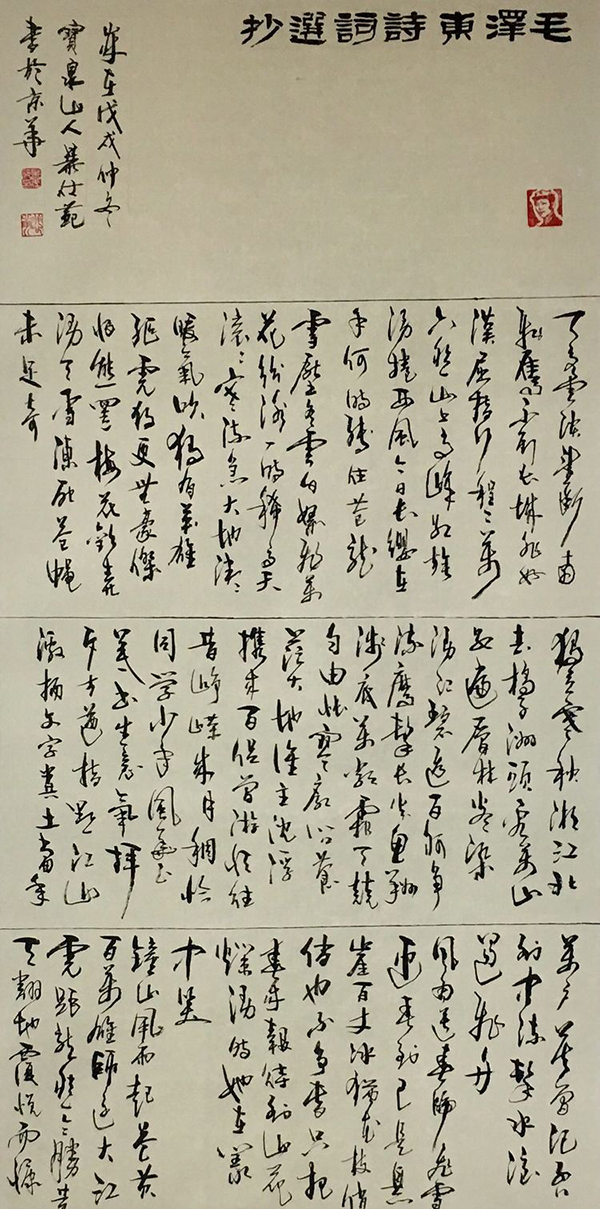 毛澤東詩詞選抄
天高雲淡望斷南
飛雁不到長城非好
漢屈指行程二萬
六盤山上高峰紅旗
漫捲西風今日長纓在
手何時縛住蒼龍
雪壓冬雲白絮飛萬
花紛謝一時稀高天
滾滾寒流急大地微微
暖氣吹獨有英雄
驅虎豹更無豪傑
怕熊羆梅花歡喜
漫天雪凍死蒼蠅
未足奇
獨立寒秋湘江北
去橘子洲頭看萬山
紅遍層林盡染
漫江碧透百舸爭
流鷹擊長空魚翔
淺底萬類霜天競
自由悵寥廓問蒼
茫大地誰主沈浮
攜來百侶曾游憶往
昔崢嶸歲月稠恰
同学少年風華正
茂書生意氣揮
斥方遒指點江山
激揚文字糞土當年
萬戶侯曾記否
到中流擊水浪
遏飛舟
風雨送春歸飛雪
迎春到已是懸
崖百丈冰猶花枝俏
俏也不爭春只把
春來報待到山花
爛漫時她在叢
中笑
鐘山風雨起蒼黃
百萬雄師過大江
虎踞龍盤今勝昔
天翻地覆慨而慷
歲在戊戌仲冬
寶泉山人
書於京華